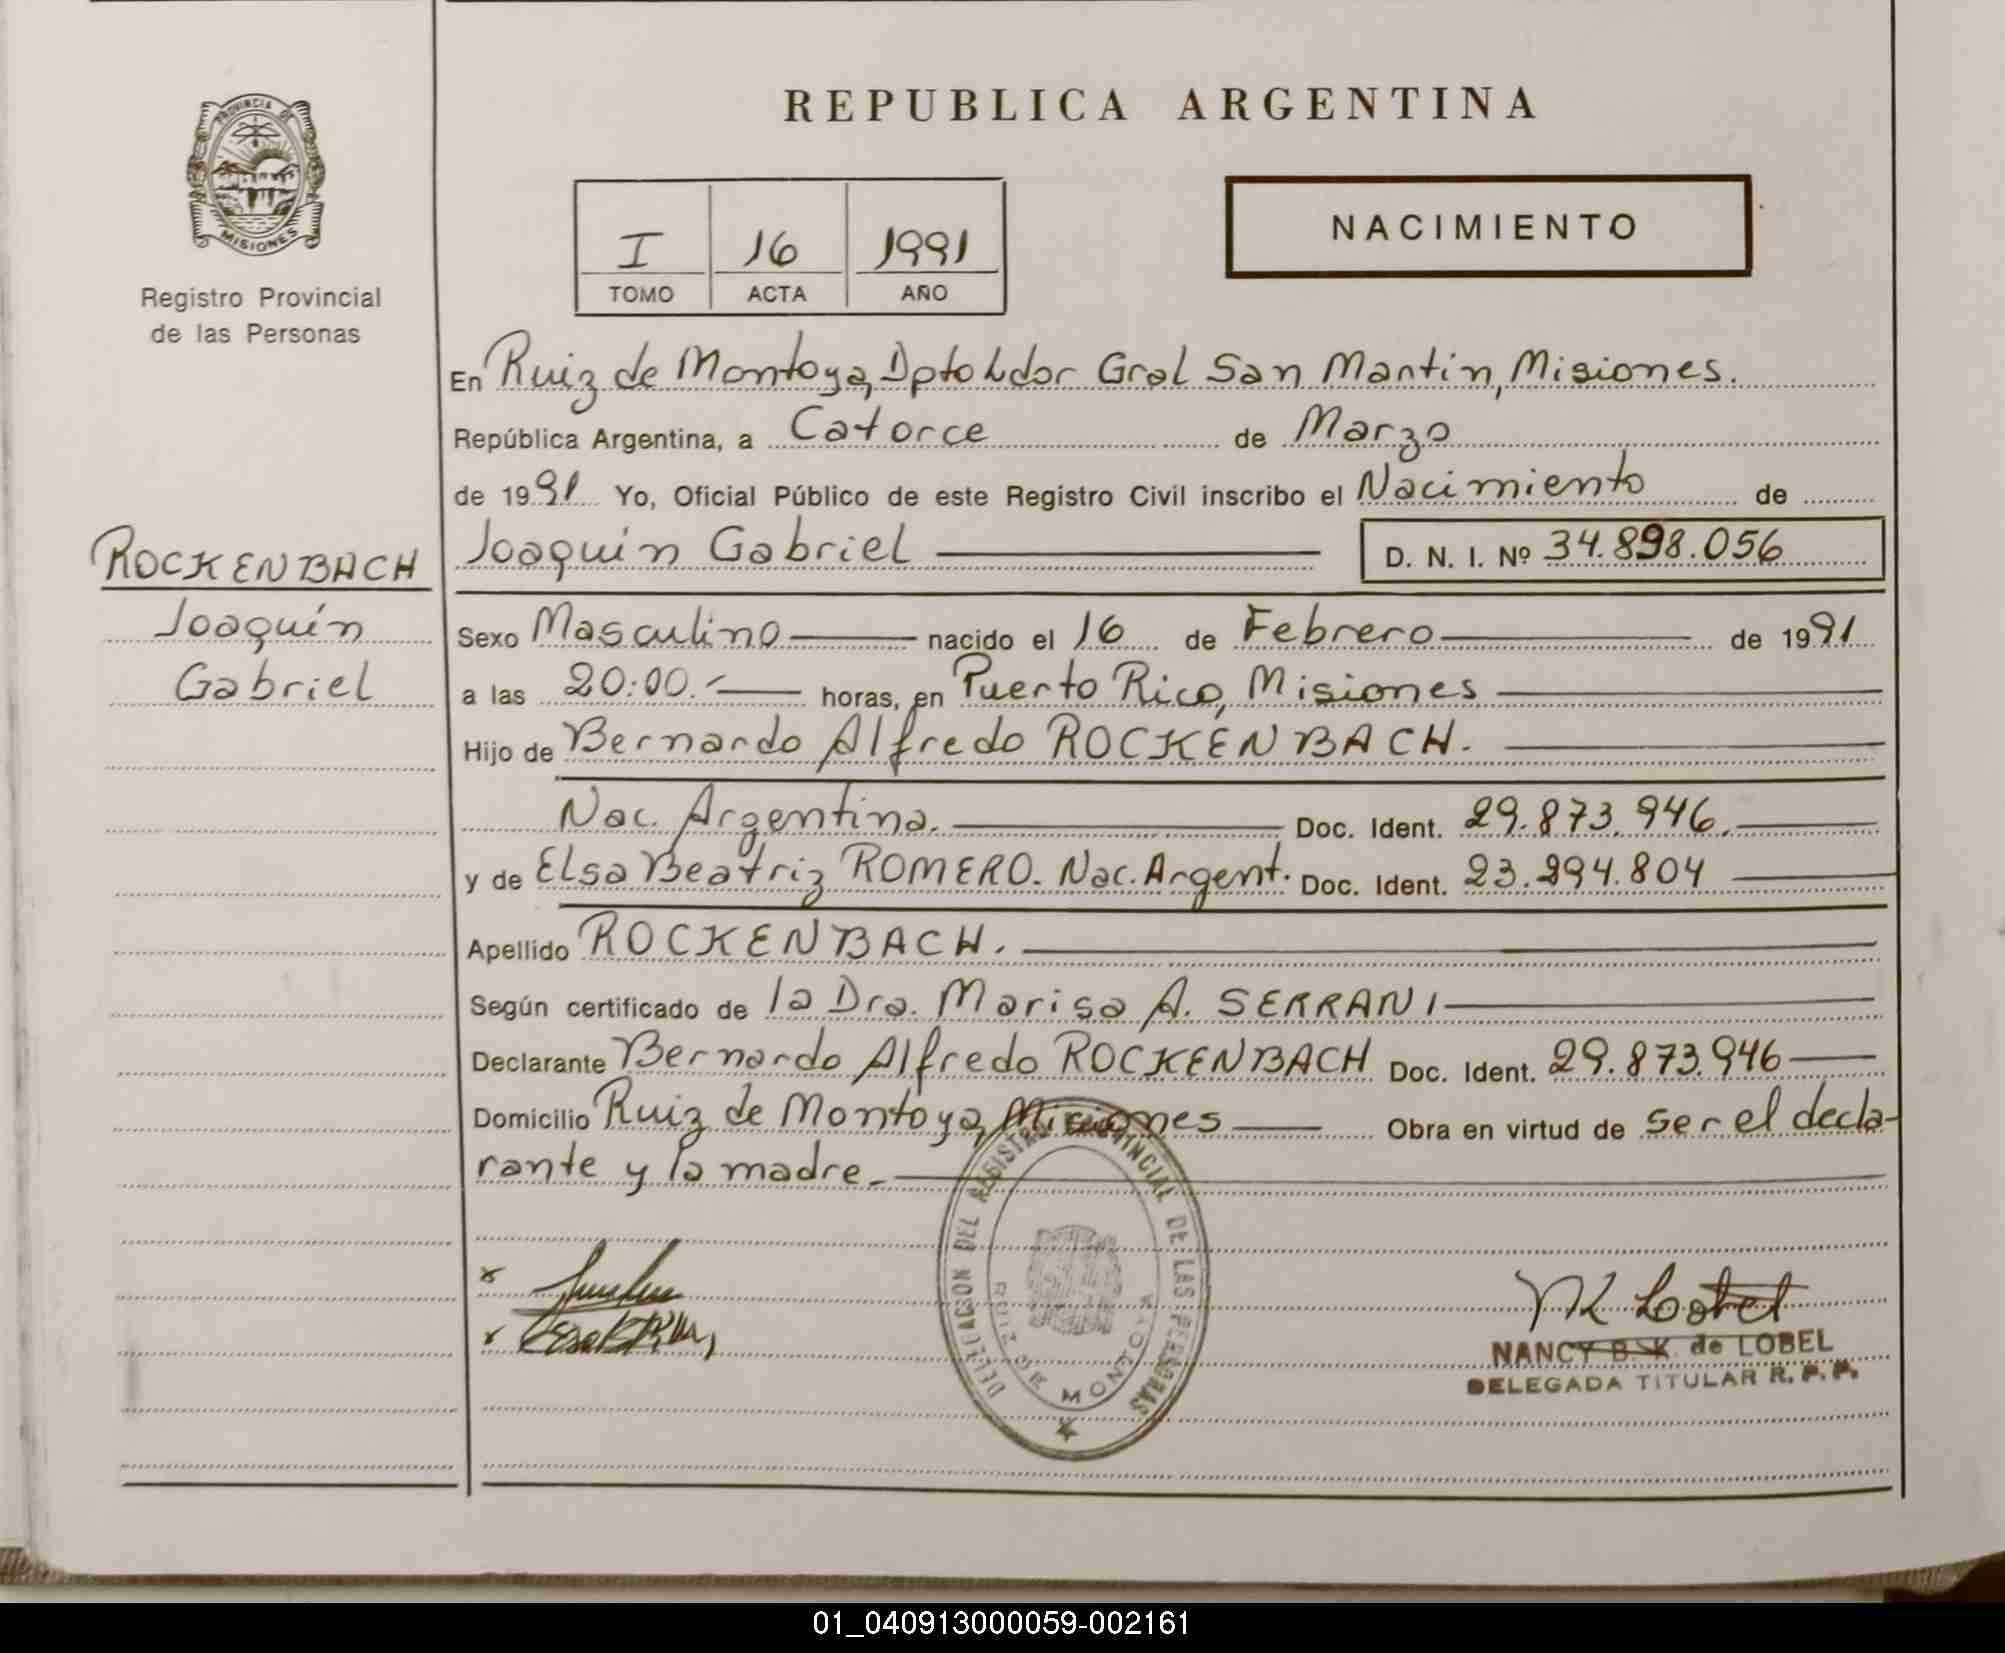 PROVINCIA DE
MISIONES
Registro Provincial
de las Personas
ROCKENBACH
Joaquín
Gabriel
REPUBLICA ARGENTINA
I 16 1991
TOMO ACTA AÑO
NACIMIENTO
En Ruiz de Montoya, Dpto Ldor Gral San Martín, Misiones.
República Argentina, a Catorce de Marzo
de 1991 Yo, Oficial Público de este Registro Civil inscribo el Nacimiento de
Joaquín Gabriel D. N. I. Nº 34.898.056
Sexo Masculino nacido el 16 de Febrero de 1991
a las 20:00.- horas, en Puerto Rico, Misiones
Hijo de Bernardo Alfredo ROCKENBACH.
Nac. Argentina. Doc. Ident. 29.873.946.
y de Elsa Beatriz ROMERO. Nac. Argent. Doc. Ident. 23.294.804
Apellido ROCKENBACH.
Según certificado de la Dra. Marisa A. SERRANI
Declarante Bernardo Alfredo ROCKENBACH Doc. Ident. 29.873.946
Domicilio Ruiz de Montoya, Misiones Obra en virtud de ser el decla-
rante y la madre.
DELEGACION DEL REGISTRO PROVINCIAL DE LAS PERSONAS
RUIZ DE MONTOYA
NK Lobel
NANCY B. K. de LOBEL
DELEGADA TITULAR R. P. P.
01_040913000059-002161